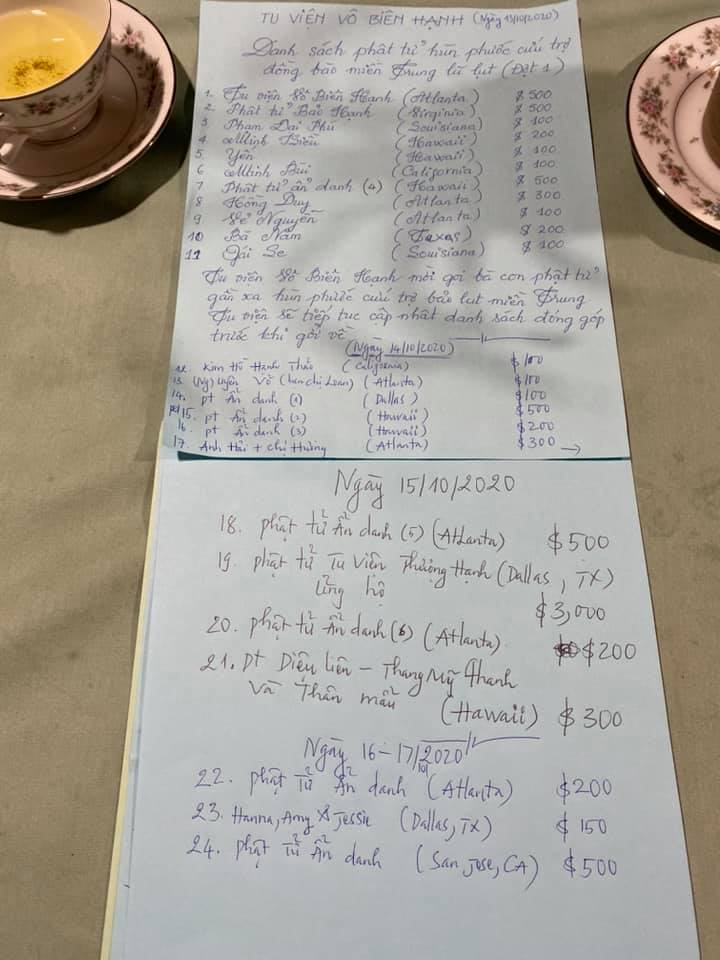 TU VIỆN VÔ BIÊN HẠNH (Ngày 13/10/2020)
Danh sách phật tử hùn phước cứu trợ
đồng bào miền Trung lũ lụt (Đợt 1)
1. Tu viện Vô Biên Hạnh (Atlanta) $ 500
2 Phật tử Bảo Hạnh (Virginia) $ 500
3 Phạm Đại Phú (Louisiana) $ 100
4 Minh Biểu (Hawaii) $ 200
5 Yến (Hawaii) $ 100
6 Minh Bùi (California) $ 100
7 Phật tử ẩn danh (4) (Hawaii) $ 500
8 Hồng Duy (Atlanta) $ 300
9 Nguyễn (Atlanta) $ 100
10 Bà Năm (Texas) $ 200
11 Gái Se (Louisiana) $ 100
Tu viện Vô Biên Hạnh mời gọi bà con phật tử
gần xa hùn phước cứu trợ bảo lụt miền Trung
Tu viện sẽ tiếp tục cập nhật danh sách đóng góp
trước khi gởi về
(Ngày 14/10/2020)
12. Kim Hồ Hạnh Thảo (California) $100
13. (Ng) Uyên Võ (bạn chị Loan) (Atlanta) $100
14. pt Ẩn danh (1) (Dallas) $100
15. pt Ẩn danh (2) (Hawaii) $500
16. pt Ẩn danh (3) (Hawaii) $200
17. Anh Hải + chị Hường (Atlanta) $300 →
Ngày 15/10/2020
18. phật tử Ẩn danh (5) (Atlanta) $500
19. phật tử Tu Viện Phượng Hạnh (Dallas, TX)
ủng hộ
$3,000
20. phật tử Ẩn danh (6) (Atlanta) $200
21. pt Diệu Liên - Thang Mỹ Thanh
và Thân mẫu
(Hawaii) $300
Ngày 16-17/10/2020
22. phật tử Ẩn danh (Atlanta) $200
23. Hanna, Amy & Jessie (Dallas, TX) $150
24. phật tử Ẩn danh (San Jose, CA) $500